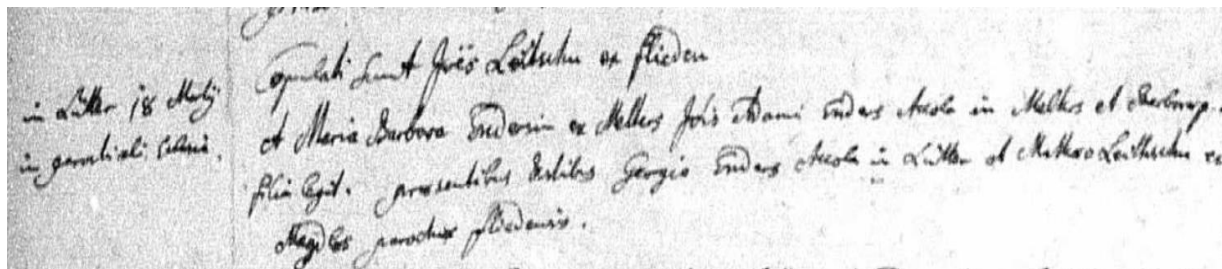 in Lütter 18 Maij
in parochiali Eclesia.
Copulati sunt Joës Leitschu ex flieden
et Maria Barbara Endersin ex Melters Jois Adami Enders Accola in Melters et
filia legit. praesentibus testibus Georgio Enders Accola in Lütter et Matheo Leithschu ex
parochiae fliedensis.